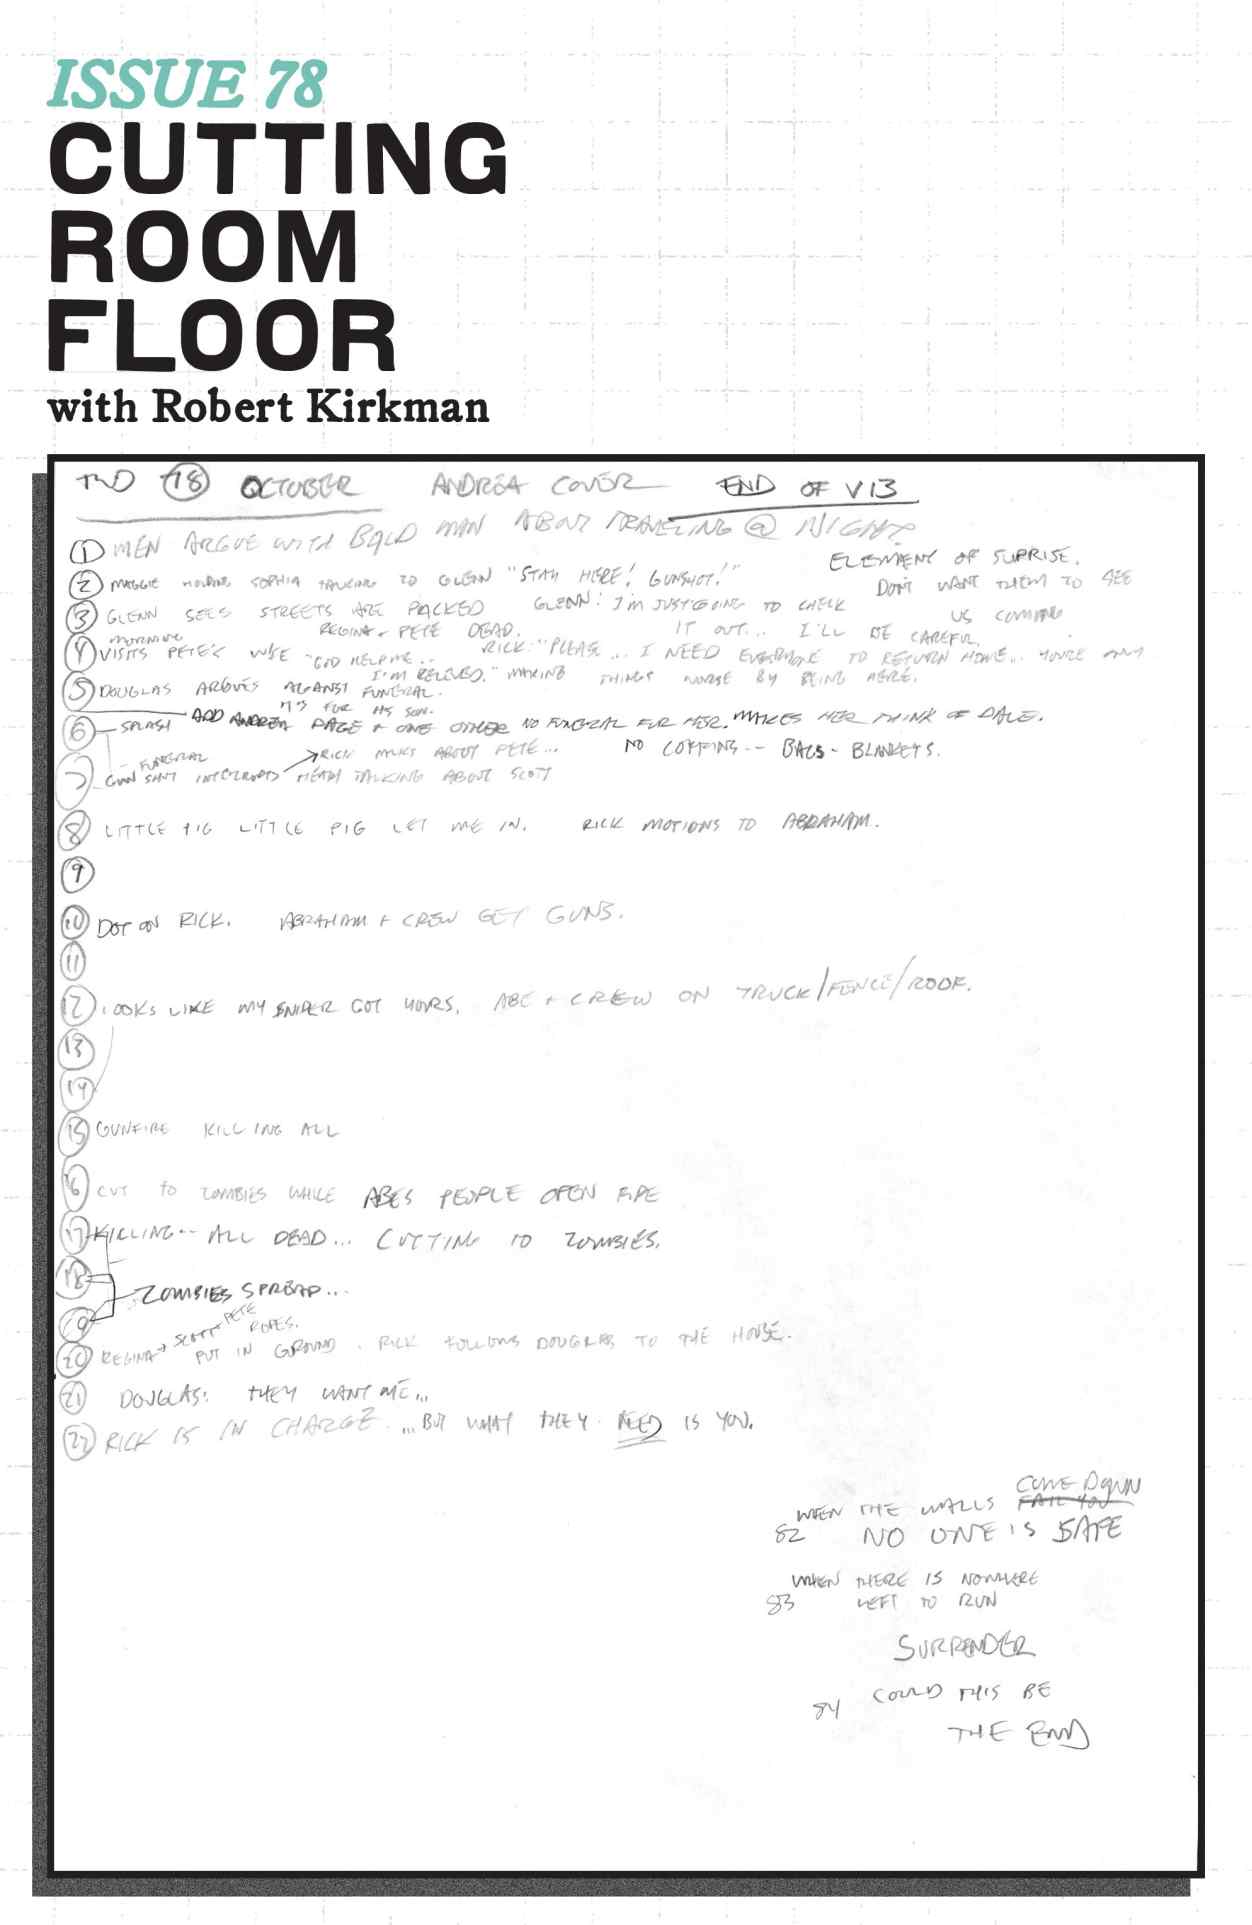 ISSUE 78
CUTTING
ROOM
FLOOR
with Robert Kirkman
TWD 78 OCTOBER ANDREA COVER END OF V13
1 MEN ARGUE WITH BALD MAN ABOUT TRAVELING @ NIGHT?
ELEMENT OF SUPRISE.
DON'T WANT THEM TO SEE
US COMING
2 MAGGIE HOLDING SOPHIA TALKING TO GLENN "STAY HERE! GUNSHOT!"
3 GLENN SEES STREETS ARE PACKED GLENN: I'M JUST GOING TO CHECK
IT OUT... I'LL BE CAREFUL.
REGINA + PETE DEAD.
MORNING
4 VISITS PETE'S WIFE "GOD HELP ME..
I'M RELIEVED."
RICK: "PLEASE... I NEED EVERYONE TO RETURN HOME... YOU'RE ONLY
MAKING THINGS WORSE BY BEING HERE.
5 DOUGLAS ARGUES AGAINST FUNERAL.
IT'S FOR HIS SON.
6 - SPLASH ADD ANDREA PAGE + ONE OTHER NO FUNERAL FOR HER. MAKES HER THINK OF DALE.
- FUNERAL RICK TALKS ABOUT PETE... NO COFFINS -- BAGS - BLANKETS.
7 GUN SHOT INTERRUPTS HEATH TALKING ABOUT SCOTT
8 LITTLE PIG LITTLE PIG LET ME IN. RICK MOTIONS TO ABRAHAM.
9
10 DOT ON RICK. ABRAHAM + CREW GET GUNS.
11
12 LOOKS LIKE MY SNIPER GOT YOURS. ABE + CREW ON TRUCK/FENCE/ROOF.
13
14
15 GUNFIRE KILLING ALL
16 CUT TO ZOMBIES WHILE ABES PEOPLE OPEN FIRE
17 KILLING -- ALL DEAD... CUTTING TO ZOMBIES.
18
ZOMBIES SPREAD...
19
20 REGINA + SCOTT + PETE PUT IN GROUND. RICK FOLLOWS DOUGLAS TO THE HOUSE.
ROPES.
21 DOUGLAS: THEY WANT ME...
22 RICK IS IN CHARGE. ...BUT WHAT THEY NEED IS YOU.
COME DOWN
WHEN THE WALLS FAIL YOU
82 NO ONE IS SAFE
WHEN THERE IS NOWHERE
83 LEFT TO RUN
SURRENDER
84 COULD THIS BE
THE END